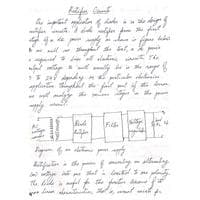 Rectifier Circuit
One important application of diodes is in the design of
rectifier circuits. A diode rectifier forms the first
stage of a dc power supply as shown in figure below
As we will see throughout the text, a dc power
is required to bias all electronic circuits. The
output voltage will usually be in the range of
3 to 24V depending on the particular electronics
application throughout the first part of this
we will analyze the various stages in the power
supply circuit.
AC
voltage
source
Diode
Rectifier
Filter
Voltage
regulator
Diagram of an electronic power supply
Rectification is the process of converting an alternating
voltage into one that is limited to one polarity.
The diode is useful for this function because of its
linear characteristics, that is, current exists for